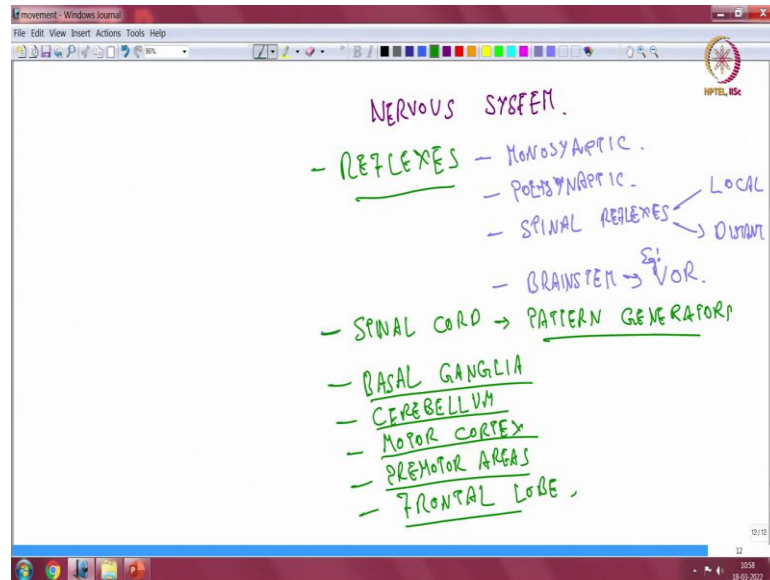 movement - Windows Journal
File Edit View Insert Actions Tools Help
86%
B I
NPTEL, IISc
NERVOUS SYSTEM.
- REFLEXES - MONOSYAPTIC.
- POLYSYNAPTIC.
- SPINAL REFLEXES LOCAL
→ DISTANT
- BRAINSTEM → Eg: VOR.
- SPINAL CORD → PATTERN GENERATORS
- BASAL GANGLIA
- CEREBELLUM
- MOTOR CORTEX
- PREMOTOR AREAS
- FRONTAL LOBE.
12/12
12
10:58
18-03-2022